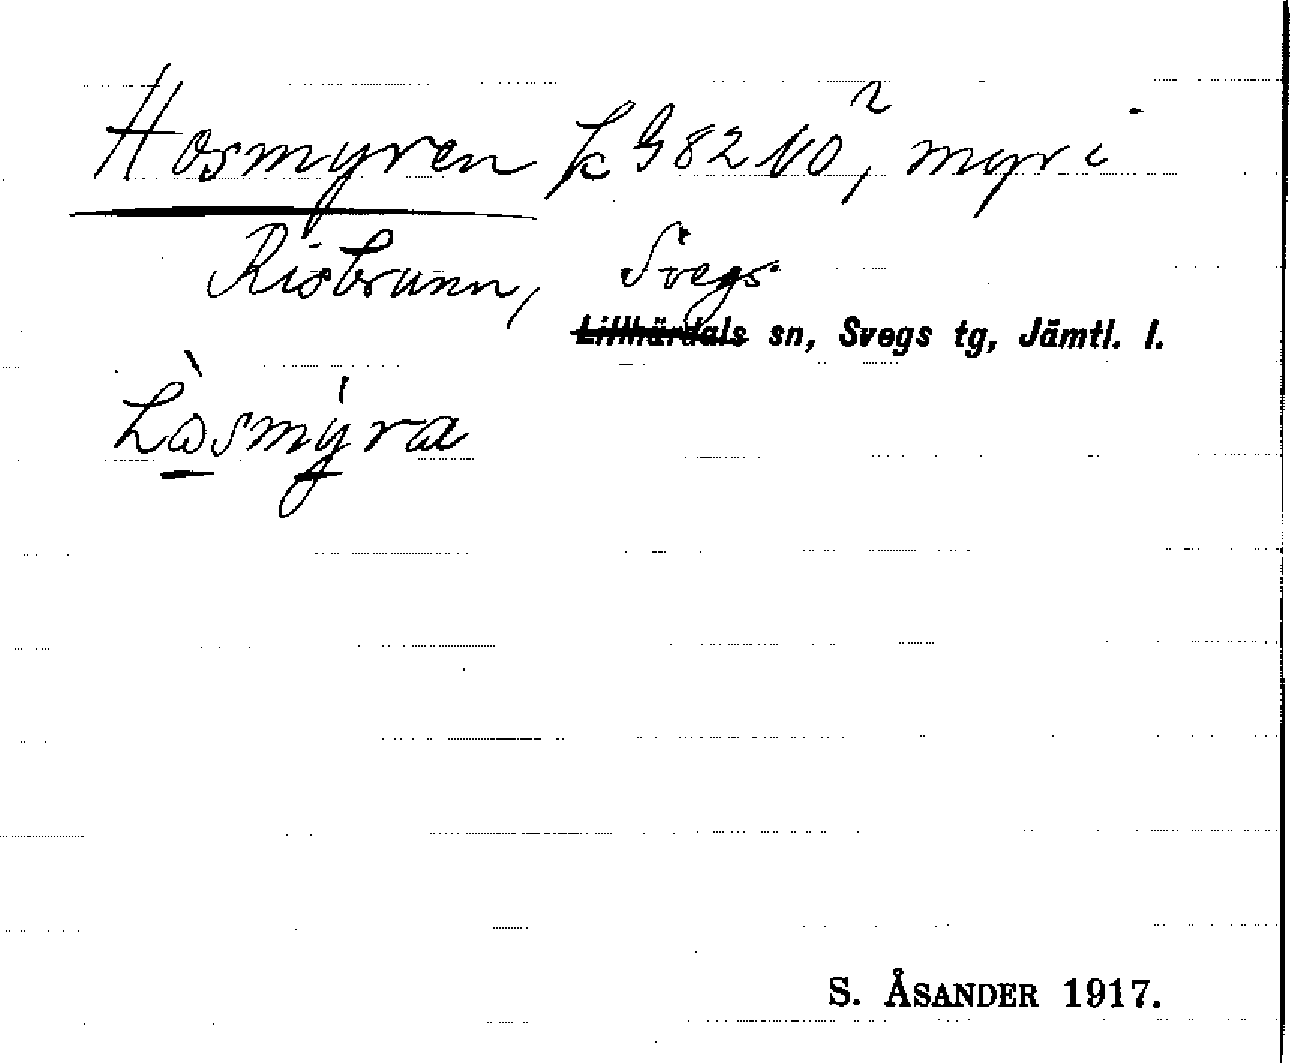 Hosmyren k G 82 NO², myr i
Risbrunn, Svegs
Lillhärdals sn, Svegs tg, Jämtl. l.
S. ÅSANDER 1917.